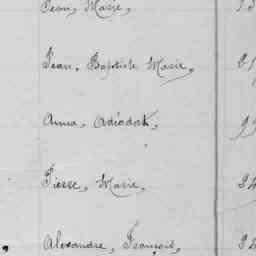 Jean, Marie,
Jean, Baptiste Marie,
Anna, Adéodat,
Pierre, Marie,
Alexandre, François,